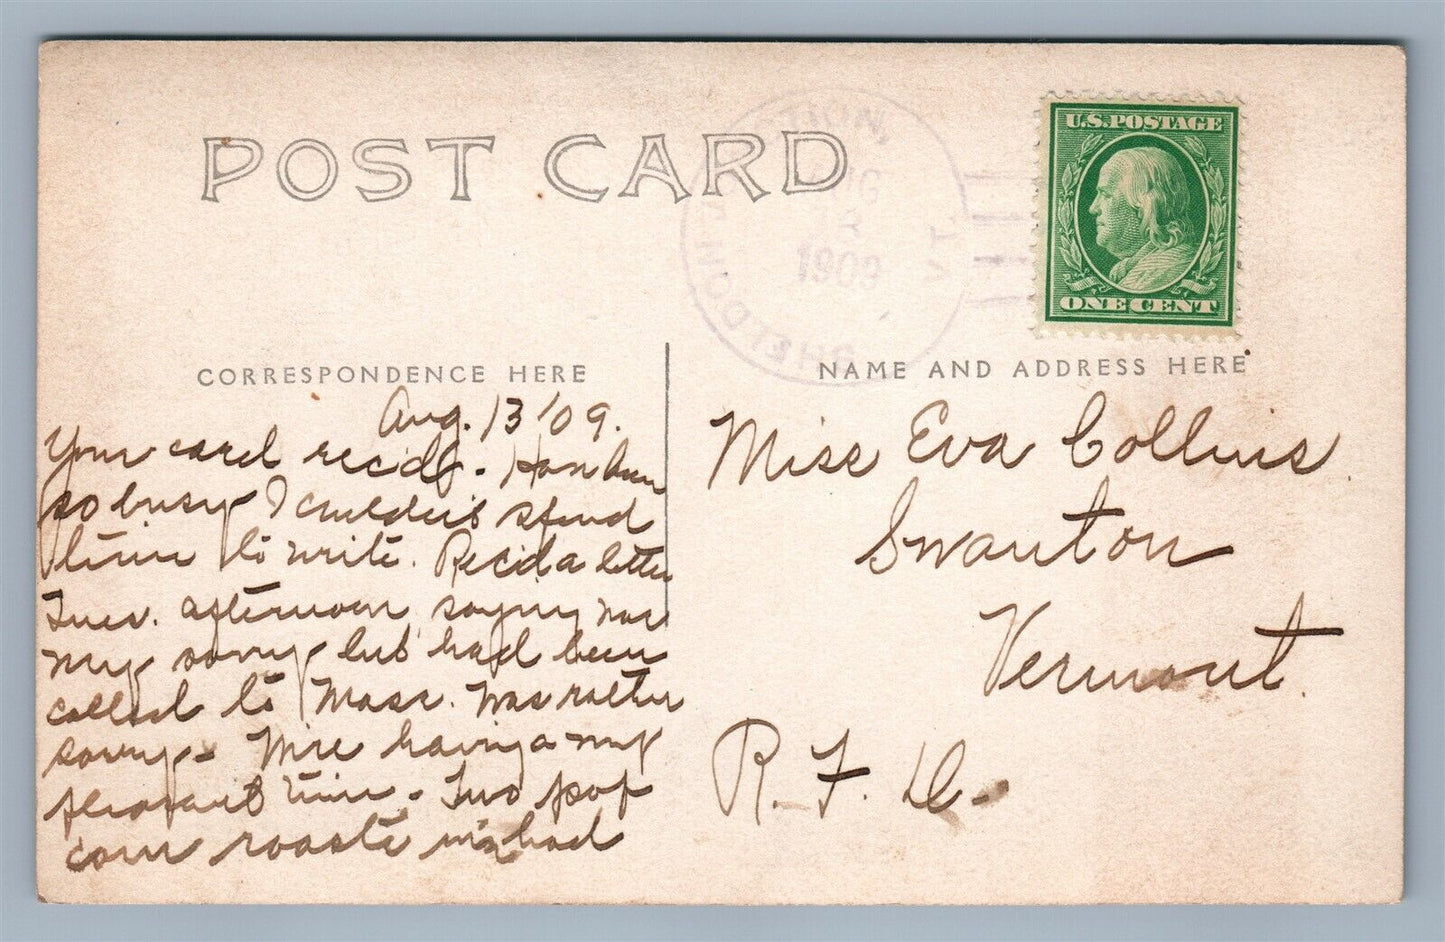 POST CARD
SHELDON JUNCTION, VT.
AUG
1909
U.S. POSTAGE
ONE CENT
CORRESPONDENCE HERE
NAME AND ADDRESS HERE
Aug. 13 '09.
Your card rec'd. Have been
so busy I couldn't spend
time to write. Rec'd a letter
Tues. afternoon saying was
very sorry but had been
called to Mass. Was rather
sorry. We're having a very
pleasant time. Two pop
corn roasts we had
Miss Eva Collins
Swanton
Vermont.
R. F. D.